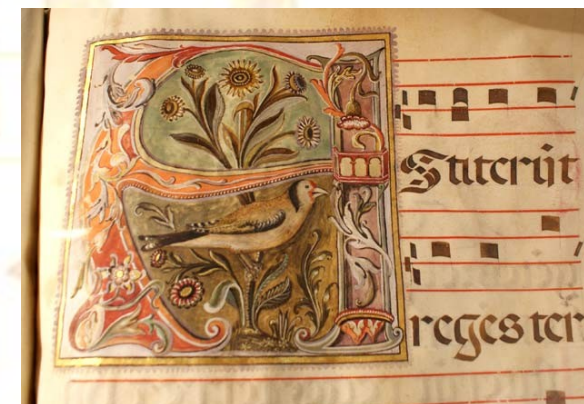 AStiterūt
reges ter